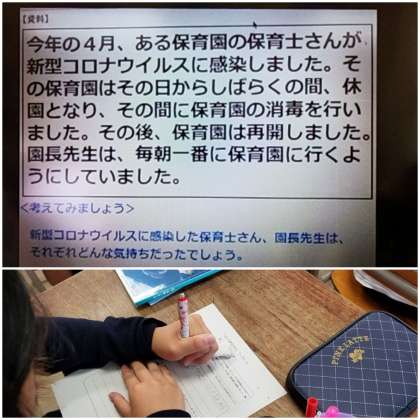 【資料】
今年の4月、ある保育園の保育士さんが
新型コロナウイルスに感染しました。そ
の保育園はその日からしばらくの間、休
園となり、その間に保育園の消毒を行い
ました。その後、保育園は再開しました。
園長先生は、毎朝一番に保育園に行くよ
うにしていました。
<考えてみましょう>
新型コロナウイルスに感染した保育士さん、園長先生は、
それぞれどんな気持ちだったでしょう。
PINK-LATTE